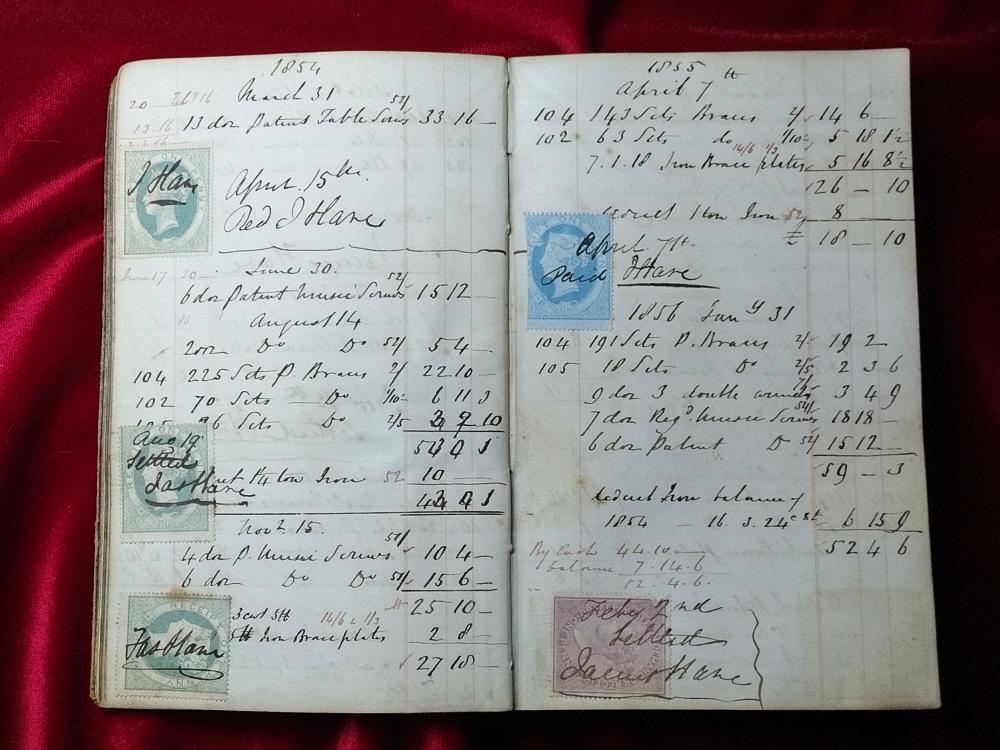 1854
20 Feb 16 March 31 52/
13.16 13 doz Patent Table Screws 33 16 —
I Hane
April 15th
Paid I Hane
June 17 30 June 30. 52/
6 doz Patent Music Screws 15 12 —
August 14
2 doz Do Do 52/ 5 4 —
104 225 Sets P Braces 2/ 22 10 —
102 70 Sets — Do 1/10 6 11 3
96 Sets Do 2/5
Aug 19
Settled
Jas Hane
ton Iron 52 10 —
Novr 15.
4 doz P. Music Screws 51/ 10 4 —
6 doz Do Do 51/ 15 6 —
25 10 —
3 cwt 14/6 & 1/3
Iron Brace plates 2 8 —
Jas Hane
27 18 —
1855
April 7th
104 143 Sets Braces 2/ 14 6 —
102 63 Sets do 1/10 5 18 1½
14/6 1/3
7.1.18 Iron Brace plates 5 16 8½
26 — 10
deduct 1 ton Iron 8
18 — 10
April 7th
Paid I Hane
1856 Jany 31
104 191 Sets P. Braces 2/ 19 2 —
105 18 Sets Do 2/5 2 3 6
9 doz 3 double 3 4 9
7 doz Regd Music Screws 54/ 18 18 —
6 doz Patent Do 52/ 15 12 —
59 — 3
deduct Iron balance of
1854 — 16.3.24 6 15 9
52 4 6
By Cash 44.10 —
balance 7.14.6
52.4.6.
Feby 2nd
Settled
James Hane